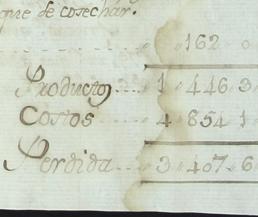 que de cosechar.
162 0
Producto 1 446 3
Costos 4 854 1
Perdida 3 407 6